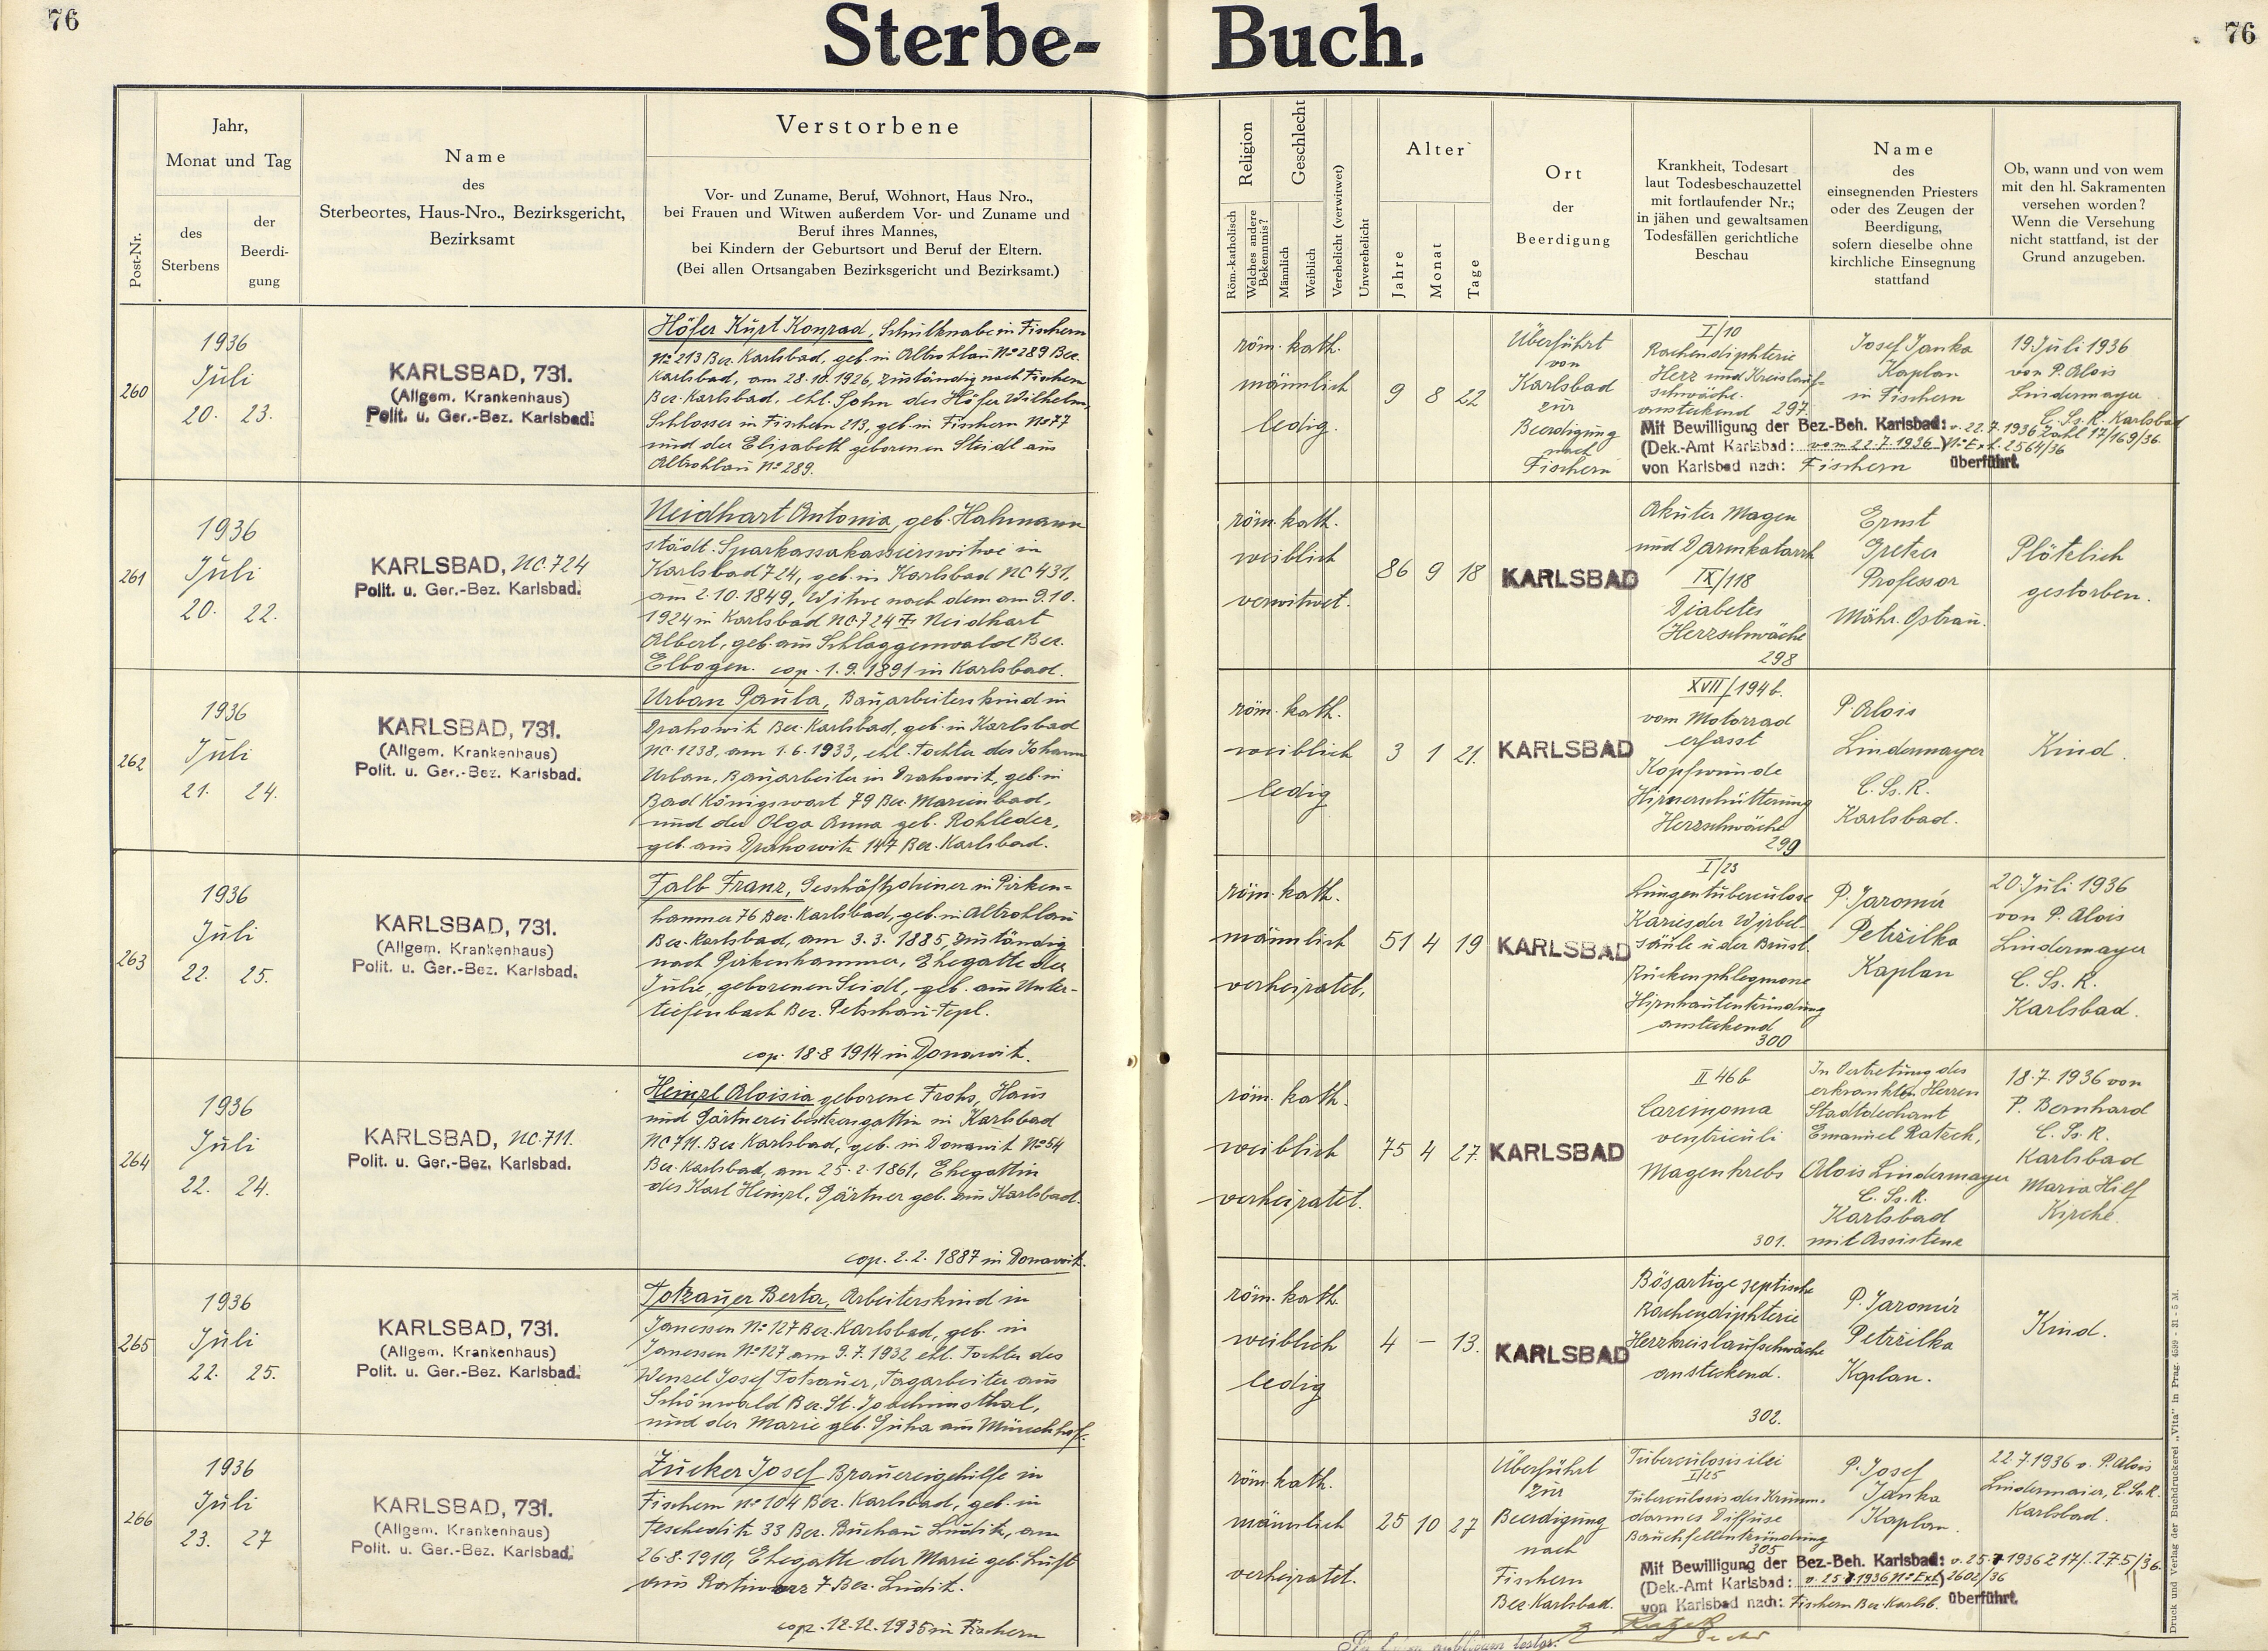 76
Sterbe- Buch.
76
Post-Nr.
Jahr,
Monat und Tag
des
Sterbens
der
Beerdi-
gung
Name
des
Sterbeortes, Haus-Nro., Bezirksgericht,
Bezirksamt
Verstorbene
Vor- und Zuname, Beruf, Wohnort, Haus Nro.,
bei Frauen und Witwen außerdem Vor- und Zuname und
Beruf ihres Mannes,
bei Kindern der Geburtsort und Beruf der Eltern.
(Bei allen Ortsangaben Bezirksgericht und Bezirksamt.)
Religion
Röm.-katholisch
Welches andere
Bekenntnis?
Geschlecht
Männlich
Weiblich
Verehelicht (verwitwet)
Unverehelicht
Alter
Jahre
Monat
Tage
Ort
der
Beerdigung
Krankheit, Todesart
laut Todesbeschauzettel
mit fortlaufender Nr.;
in jähen und gewaltsamen
Todesfällen gerichtliche
Beschau
Name
des
einsegnenden Priesters
oder des Zeugen der
Beerdigung,
sofern dieselbe ohne
kirchliche Einsegnung
stattfand
Ob, wann und von wem
mit den hl. Sakramenten
versehen worden?
Wenn die Versehung
nicht stattfand, ist der
Grund anzugeben.
260
1936
Juli
20. 23.
KARLSBAD, 731.
(Allgem. Krankenhaus)
Polit. u. Ger.-Bez. Karlsbad.
Höfer Kurt Konrad, Schulknabe in Fischern
No 213 Bez. Karlsbad, geb. in Altrohlau No 289 Bez.
Karlsbad, am 28.10.1926, zuständig nach Fischern
Bez. Karlsbad, ehl. Sohn des Höfer Wilhelm,
Schlosser in Fischern 213, geb. in Fischern No 77
und der Elisabeth geborenen Steidl aus
Altrohlau No 289.
röm. kath.
männlich
ledig.
9 8 22
Überführt
von
Karlsbad
zur
Beerdigung
nach
Fischern
I/10
Rachendiphterie
Herz und Kreislauf-
schwäche.
ansteckend 297.
Josef Janka
Kaplan
in Fischern
19. Juli 1936
von P. Alois
Lindermayer
C. Ss. R. Karlsbad
Mit Bewilligung der Bez.-Beh. Karlsbad: v. 22.7.1936 Zahl 17/169/36.
(Dek.-Amt Karlsbad: vom 22.7.1936) No Exh. 2564/36
von Karlsbad nach: Fischern überführt.
261
1936
Juli
20. 22.
KARLSBAD, NC. 724
Polit. u. Ger.-Bez. Karlsbad.
Neidhart Antonia, geb. Hahmann
städt. Sparkassakassierswitwe in
Karlsbad 724, geb. in Karlsbad NC 431,
am 2.10.1849, Witwe nach dem am 9.10.
1924 in Karlsbad NC. 724 † Neidhart
Albert, geb. aus Schlaggenwald Bez.
Elbogen. cop. 1.9.1891 in Karlsbad.
röm. kath.
weiblich
verwitwet.
86 9 18
KARLSBAD
Akuter Magen
und Darmkatarrh
IX/118
Diabetes
Herzschwäche
298
Ernst
Professor
Mähr. Ostrau.
Plötzlich
gestorben.
262
1936
Juli
21. 24.
KARLSBAD, 731.
(Allgem. Krankenhaus)
Polit. u. Ger.-Bez. Karlsbad.
Urban Paula, Bauarbeiterskind in
Drahowitz Bez. Karlsbad, geb. in Karlsbad
NC. 1238, am 1.6.1933, ehl. Tochter des Johann
Urban, Bauarbeiter in Drahowitz, geb. in
Bad Königswart 79 Bez. Marienbad,
und der Olga Anna geb. Rohleder,
geb. aus Drahowitz 147 Bez. Karlsbad.
röm. kath.
weiblich
ledig
3 1 21.
KARLSBAD
XVII/194 b.
vom Motorrad
erfasst
Kopfwunde
Hirnerschütterung
Herzschwäche
299
P. Alois
Lindermayer
C. Ss. R.
Karlsbad.
Kind.
263
1936
Juli
22. 25.
KARLSBAD, 731.
(Allgem. Krankenhaus)
Polit. u. Ger.-Bez. Karlsbad.
Falb Franz, Geschäftsdiener in Pirken-
hammer 76 Bez. Karlsbad, geb. in Altrohlau
Bez. Karlsbad, am 3.3.1885, zuständig
nach Pirkenhammer, Ehegatte der
Julie, geborenen Seidl, geb. aus Unter-
tiefenbach Bez. Petschau-Tepl.
cop. 18.8 1914 in Donawitz.
röm. kath.
männlich
verheiratet,
51 4 19
KARLSBAD
I/23
Lungentuberculose
Karies der Wirbel-
säule u der Brust.
Rückenphlegmone
Hirnhautentzündung
ansteckend
300
P. Jaromír
Petržilka
Kaplan
20. Juli 1936
von P. Alois
Lindermayer
C. Ss. R.
Karlsbad.
264
1936
Juli
22. 24.
KARLSBAD, NC. 711.
Polit. u. Ger.-Bez. Karlsbad.
Heinzl Aloisia geborene Frohs, Haus
und Gärtnereibesitzersgattin in Karlsbad
NC 711. Bez. Karlsbad, geb. in Donawitz No 54
Bez. Karlsbad, am 25.2.1861, Ehegattin
des Karl Heinzl, Gärtner geb. aus Karlsbad.
cop. 2.2.1887 in Donawitz.
röm. kath.
weiblich
verheiratet.
75 4 27.
KARLSBAD
II 46 b
Carcinoma
ventriculi
Magenkrebs
301.
In Vertretung des
erkrankten Herren
Stadtdechant
Emanuel Ratzek,
Alois Lindermayer
C. Ss. R.
Karlsbad
mit Assistenz
18.7.1936 von
P. Bernhard
C. Ss. R.
Karlsbad
Maria Hilf
Kirche.
265
1936
Juli
22. 25.
KARLSBAD, 731.
(Allgem. Krankenhaus)
Polit. u. Ger.-Bez. Karlsbad.
Totzauer Berta, Arbeiterskind in
Janessen No 127 Bez. Karlsbad, geb. in
Janessen No 127 am 9.7.1932 ehl. Tochter des
Wenzel Josef Totzauer, Tagarbeiter aus
Schönwald Bez. St. Joachimsthal,
und der Marie geb. aus Münchhof.
röm. kath.
weiblich
ledig
4 — 13.
KARLSBAD
Bösartige septische
Rachendiphterie
Herzkreislaufschwäche
ansteckend.
302.
P. Jaromír
Petržilka
Kaplan.
Kind.
266
1936
Juli
23. 27
KARLSBAD, 731.
(Allgem. Krankenhaus)
Polit. u. Ger.-Bez. Karlsbad.
Zucker Josef Brauereigehilfe in
Fischern No 104 Bez. Karlsbad, geb. in
Teschetitz 33 Bez. Buchau Luditz, am
26.8.1910, Ehegatte der Marie geb. Luft
aus 7 Bez. Luditz.
cop. 12.12.1935 in Fischern
röm. kath.
männlich
verheiratet.
25 10 27
Überführt
zur
Beerdigung
nach
Fischern
Bez. Karlsbad.
Tuberculosis ilei
I/25
Tuberculosis des Krumm-
darmes Diffuse
Bauchfellentzündung
305
P. Josef
Janka
Kaplan.
22.7.1936 v. P. Alois
Lindermaier, C. Ss. R.
Karlsbad.
Mit Bewilligung der Bez.-Beh. Karlsbad: v. 25.7 1936 Z 17/175/36.
(Dek.-Amt Karlsbad: v. 25.7.1936 No Exh) 2602/36
von Karlsbad nach: Fischern Bez. Karlsb. überführt.
Druck und Verlag der Buchdruckerei „Vita" in Prag. 4599 - 31 - 5 M.